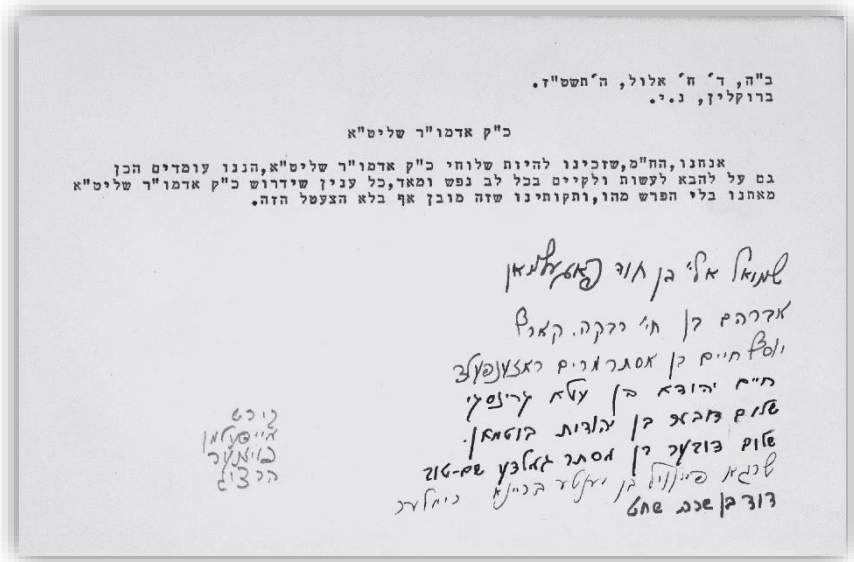 ב"ה, ד' ח' אלול, ה'תשט"ז.
ברוקלין, נ.י.
כ"ק אדמו"ר שליט"א
אנחנו,הח"מ,שזכינו להיות שלוחי כ"ק אדמו"ר שליט"א,הננו עומדים הכן
גם על להבא לעשות ולקיים בכל לב נפש ומאד,כל ענין שידרוש כ"ק אדמו"ר שליט"א
מאתנו בלי הפרש מהו,ותקותינו שזה מובן אף בלא הצעטל הזה.
שמואל אלי' בן
אברהם בן חי' רבקה. קארף
יוסף חיים בן אסתר מרים ראזענפעלד
חיים יהודא בן עטא קרינסקי
שלום דובער בן יהודית בוטמאן.
שלום דובער בן אסתר גאלדע שם-טוב
שרגא פייוויל בן יענטע בריינא רימלער
דוד בן שרה שחט
קירש
אייפעלמן
פויזנער
הרצוג